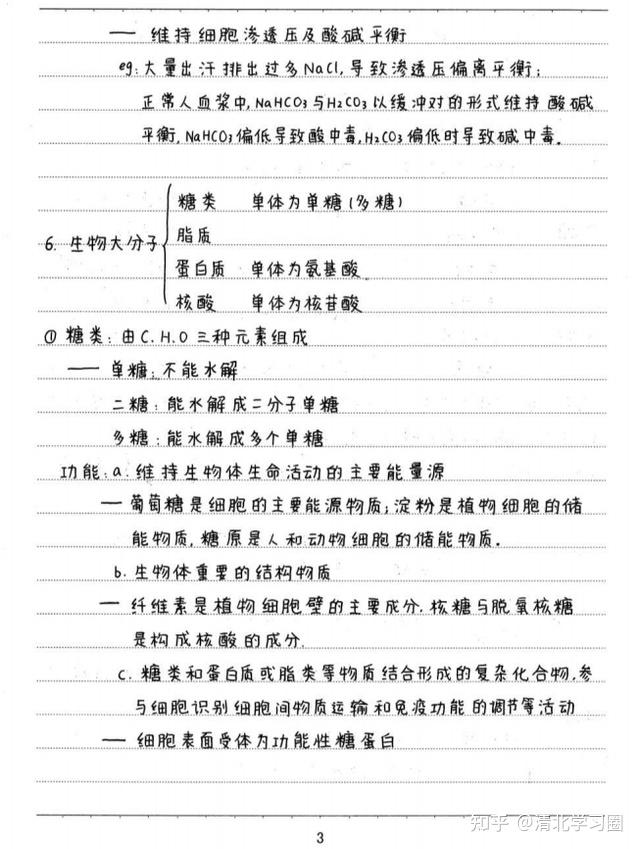 — 维持细胞渗透压及酸碱平衡
eg:大量出汗排出过多NaCl,导致渗透压偏离平衡;
正常人血浆中,NaHCO3与H2CO3以缓冲对的形式维持酸碱
平衡,NaHCO3偏低导致酸中毒,H2CO3偏低时导致碱中毒.
6. 生物大分子
糖类 单体为单糖(多糖)
脂质
蛋白质 单体为氨基酸
核酸 单体为核苷酸
① 糖类:由C.H.O三种元素组成
— 单糖:不能水解
二糖:能水解成二分子单糖
多糖:能水解成多个单糖
功能:a.维持生物体生命活动的主要能量源
— 葡萄糖是细胞的主要能源物质;淀粉是植物细胞的储
能物质,糖原是人和动物细胞的储能物质.
b.生物体重要的结构物质
— 纤维素是植物细胞壁的主要成分.核糖与脱氧核糖
是构成核酸的成分.
c.糖类和蛋白质或脂类等物质结合形成的复杂化合物,参
与细胞识别细胞间物质运输和免疫功能的调节等活动
— 细胞表面受体为功能性糖蛋白
3
知乎 @清北学习圈